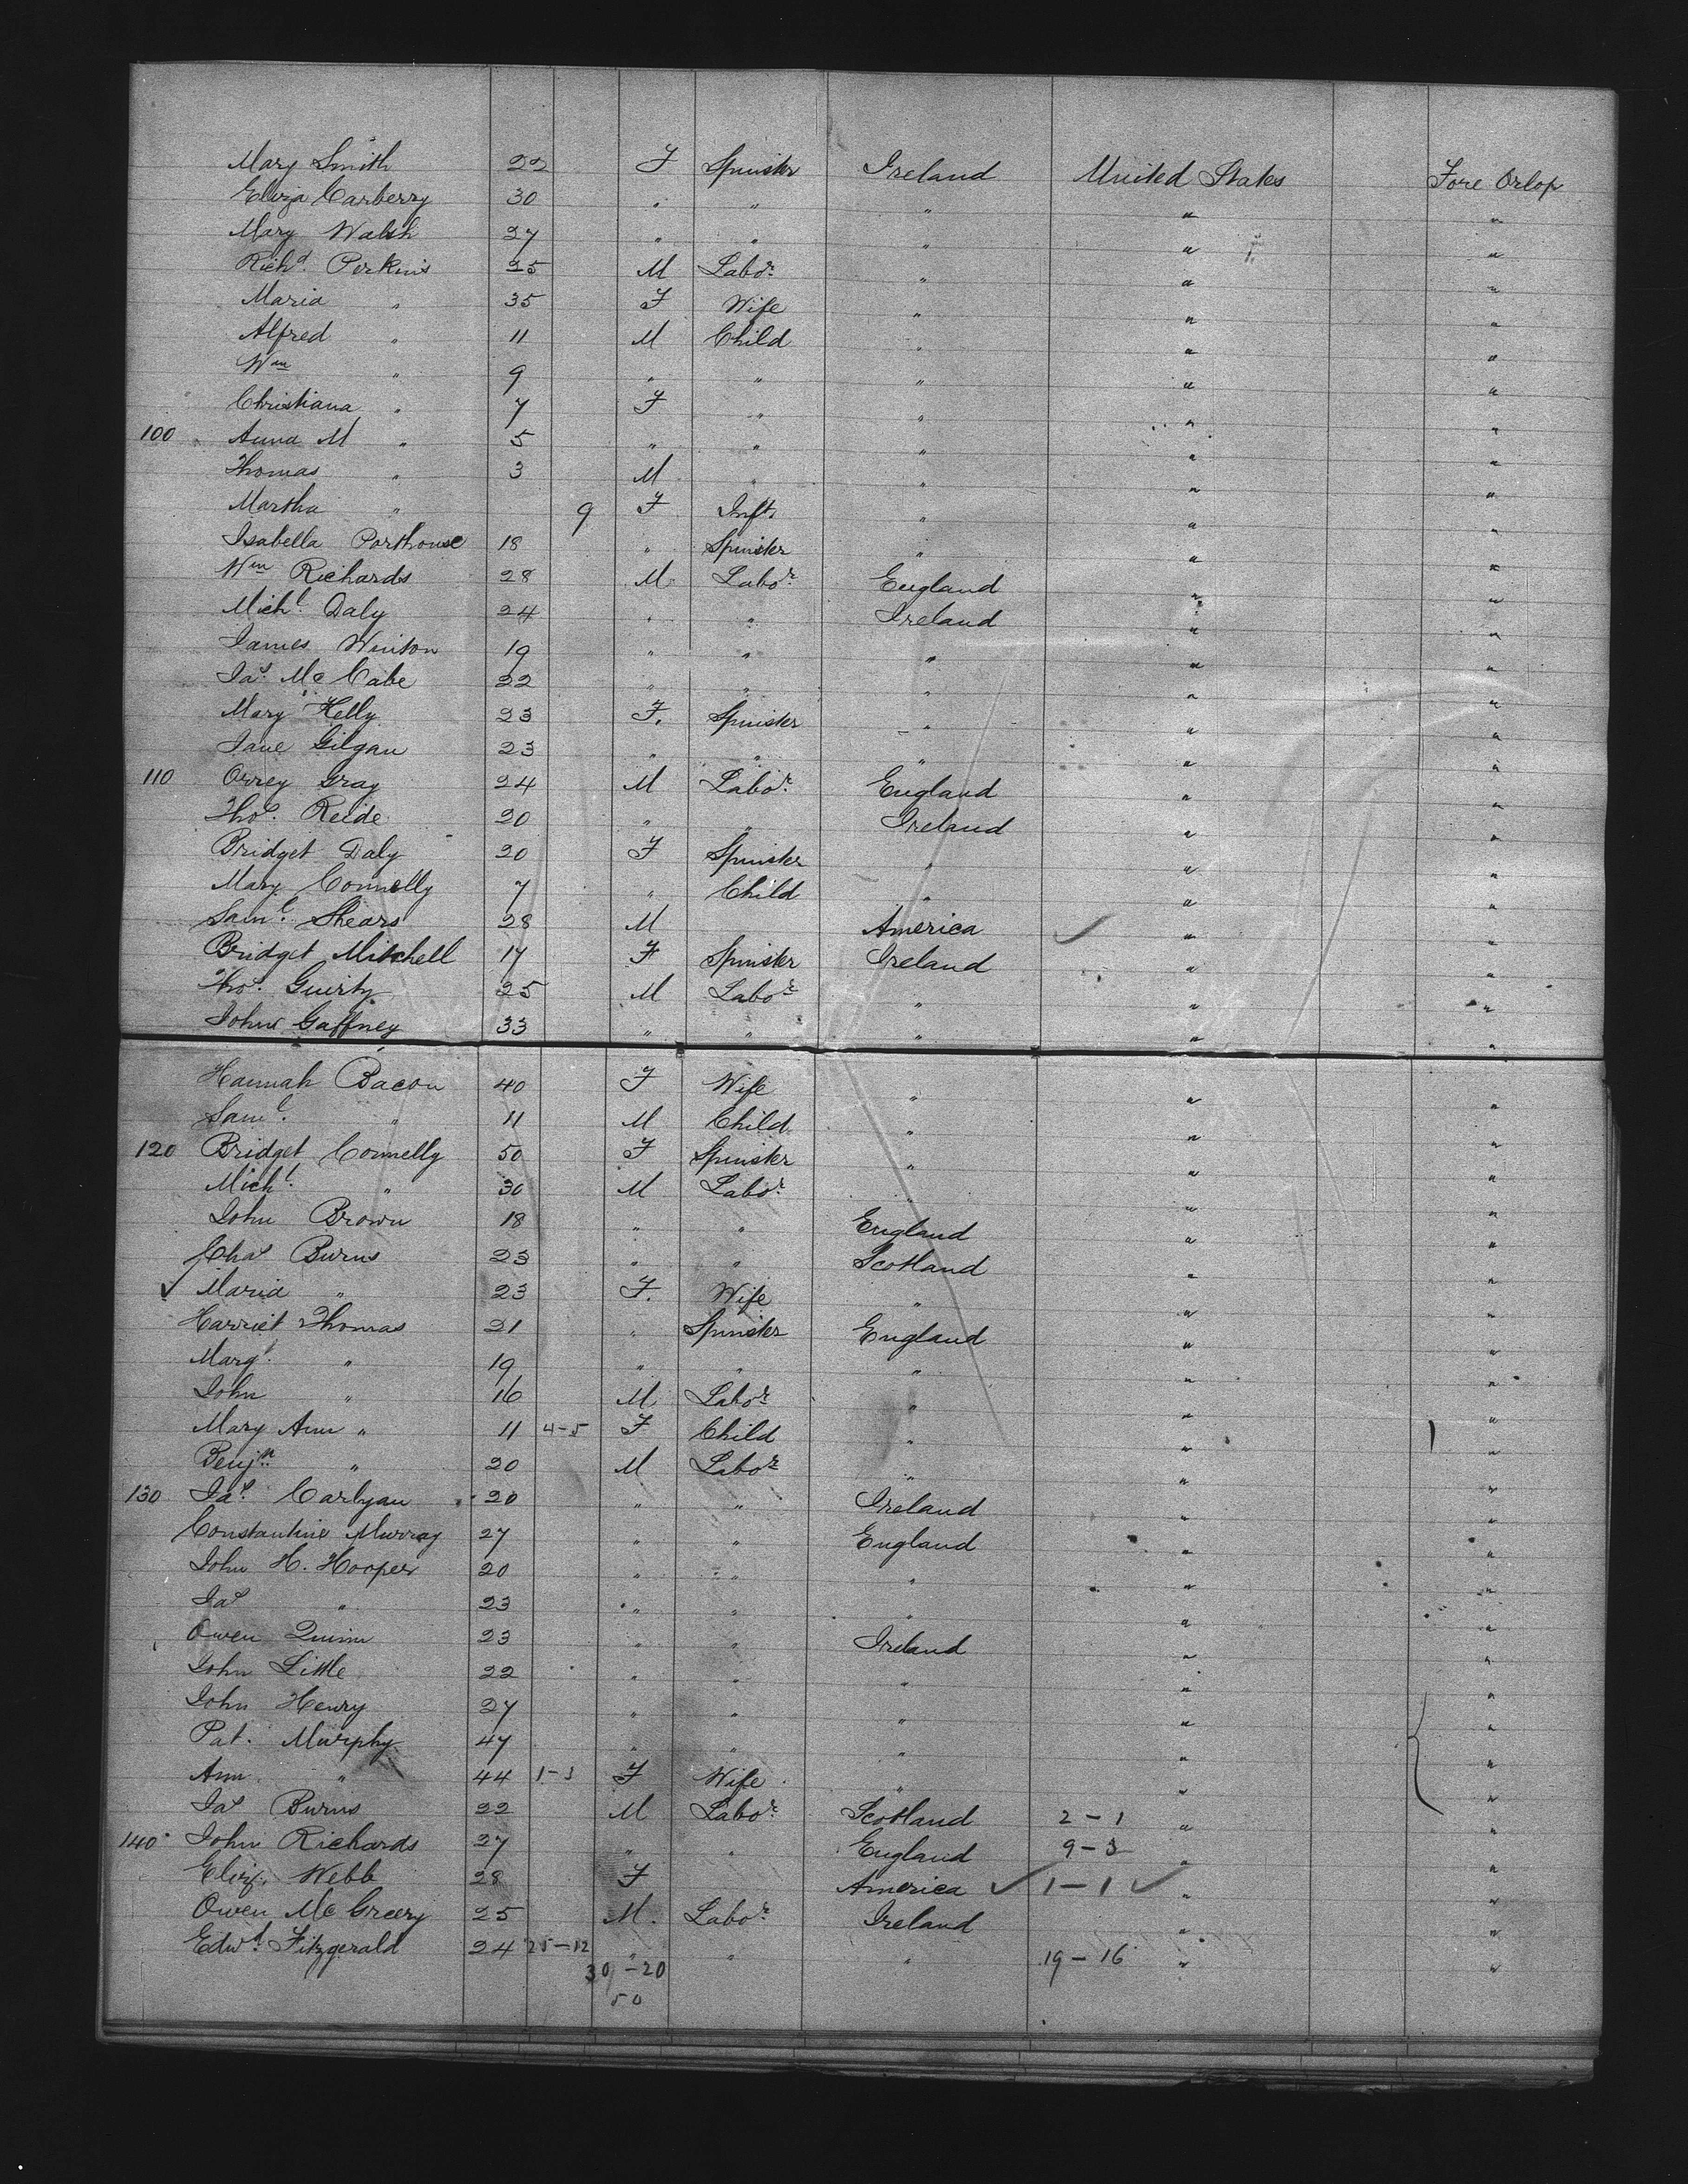 Mary Smith 22 F Spinster Ireland United States Fore Orlop
Eliza Carberry 30 " " " " "
Mary Walsh 27 " " " " "
Richd. Perkins 25 M Labor. " " "
Maria " 35 F Wife " " "
Alfred " 11 M Child " " "
Wm " 9 " " " " "
Christiana " 7 F " " " "
100 Anna M " 5 " " " " "
Thomas " 3 M " " " "
Martha " 9 F Inft. " " "
Isabella Porthouse 18 " Spinster " " "
Wm Richards 28 M Labor. England " "
Michl. Daly 24 " " Ireland " "
James Winton 19 " " " " "
Jas. Mc Cabe 22 " " " " "
Mary Kelly 23 F. Spinster " " "
Jane Gilgan 23 " " " " "
110 Orrey Gray 24 M Labor. England " "
Thos. Reide 20 " " Ireland " "
Bridget Daly 20 F Spinster " " "
Mary Connelly 7 " Child " " "
Saml. Shears 28 M America ✓ " "
Bridget Mitchell 17 F Spinster Ireland " "
Thos. Guirty 25 M Labor. " " "
John Gaffney 33 " " " " "
Hannah Bacon 40 F Wife " " "
Saml. " 11 M Child " " "
120 Bridget Connelly 50 F Spinster " " "
Michl. " 30 M Labor. " " "
John Brown 18 " " England " "
Chas Burns 23 " " Scotland " "
✓ Maria " 23 F. Wife " " "
Harriet Thomas 21 " Spinster England " "
Margt. " 19 " " " " "
John " 16 M Labor. " " "
Mary Ann " 11 4-5 F Child " " "
Benjn. " 20 M Labor. " " "
130 Jas. Carlyan 20 " " Ireland " "
Constantine Murray 27 " " England " "
John H. Hooper 20 " " " " "
Jas " 23 " " " " "
Owen Quinn 23 " " Ireland " "
John Little 22 " " " " "
John Henry 27 " " " " "
Pat. Murphy 47 " " " " "
Ann " 44 1-3 F Wife " " "
Jas Burns 22 M Labor. Scotland 2-1 " "
140 John Richards 27 " " England 9-3 " "
Eliz. Webb 28 F America ✓ 1-1 ✓ " "
Owen Mc Greery 25 M. Labor. Ireland " "
Edwd. Fitzgerald 24 25-12 " " " 19-16 " "
30-20
50